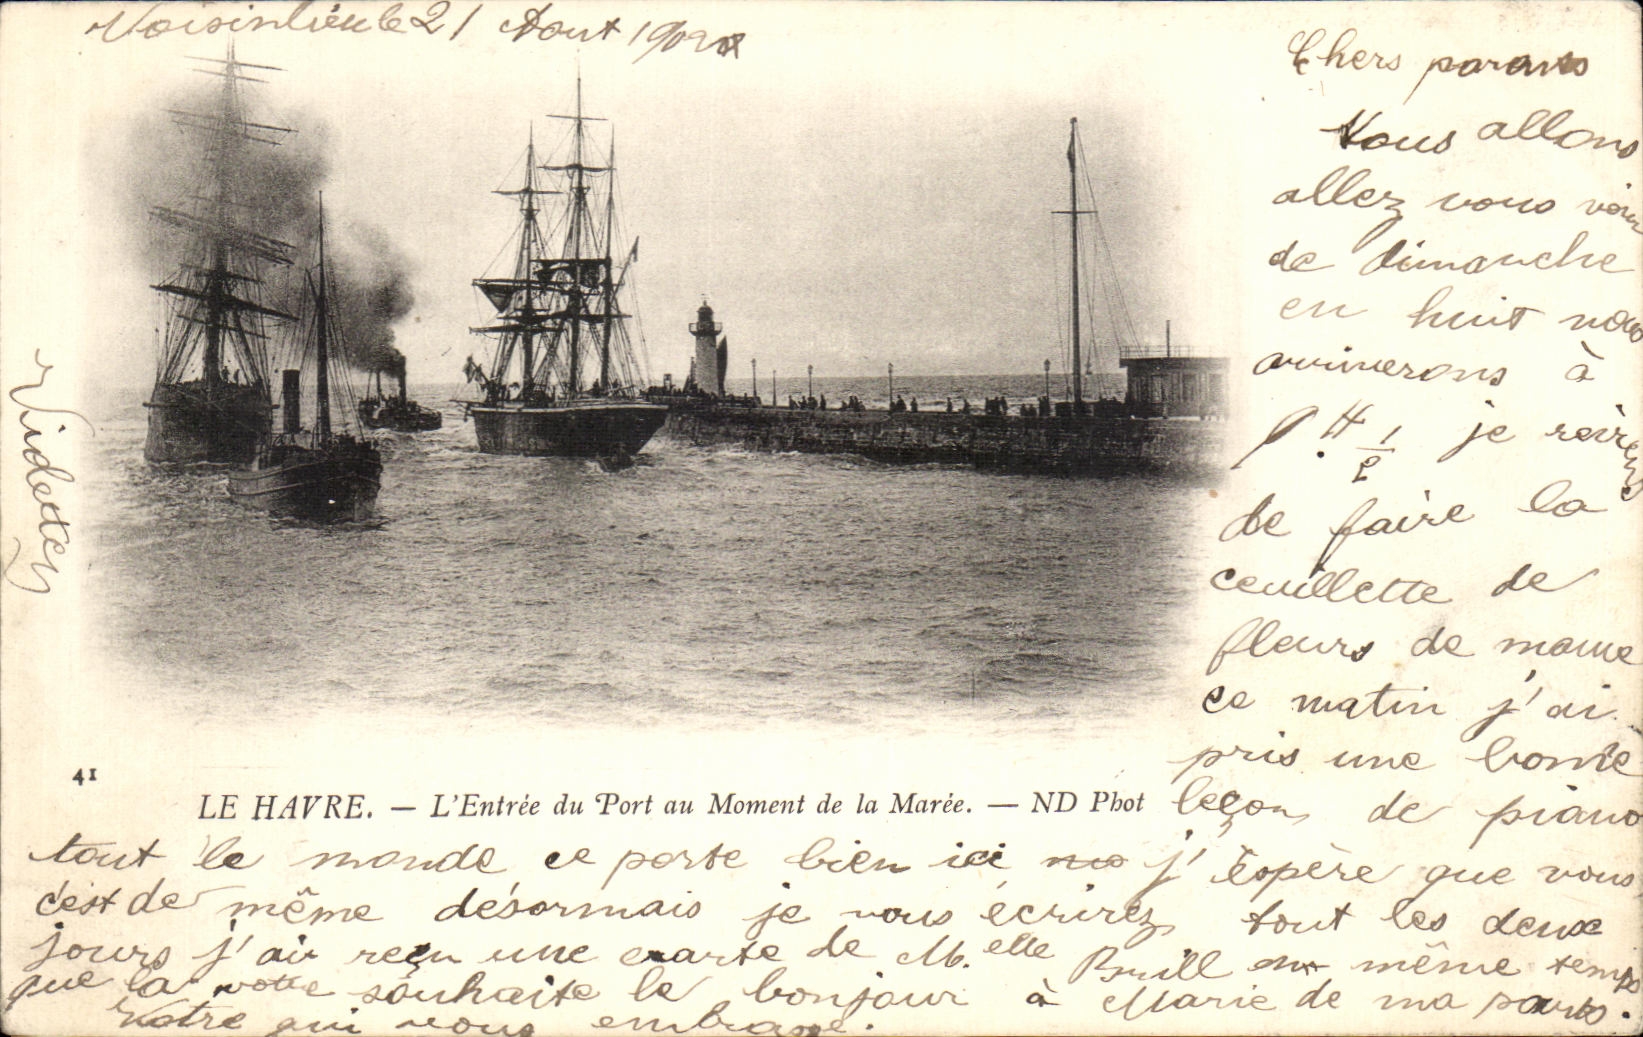 Voisinlieu le 21 Aout 1902
Chers parants
Nous allons
allez vous voir
de dimanche
en huit nous
arriverons à
9.H 1/2 je reviens
de faire la
ceuillette de
fleurs de mauve
ce matin j'ai
pris une bonne
leçon de piano
tout le monde ce porte bien ici j'éspère que vous
c'est de même désormais je vous écrirez tout les deux
jours j'ai reçu une carte de M.elle Brill en même temps
que la votre souhaite le bonjour à Marie de ma parts.
Votre qui vous embrasse.
Videttey
41
LE HAVRE. — L'Entrée du Port au Moment de la Marée. — ND Phot